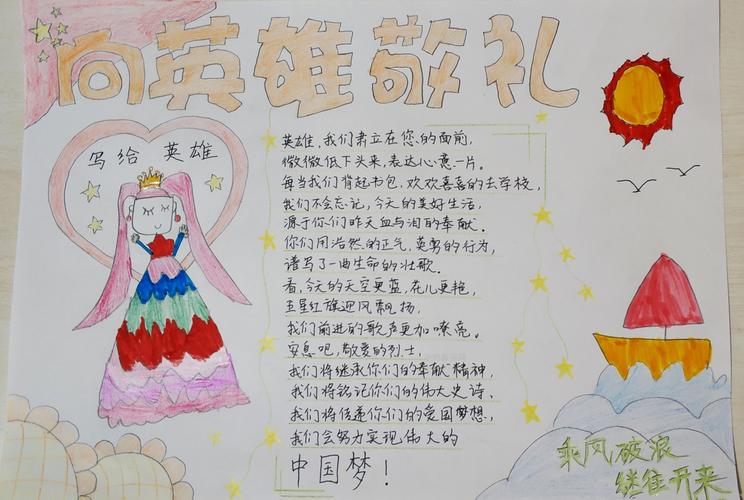 向英雄敬礼
写给 英雄
英雄,我们肃立在您的面前,
微微低下头来,表达心意一片。
每当我们背起书包,欢欢喜喜的去学校,
我们不会忘记,今天的美好生活,
源于你们昨天血与泪的奉献.
你们用浩然的正气,英勇的行为,
谱写了一曲生命的壮歌.
看,今天的天空更蓝,花儿更艳,
五星红旗迎风飘扬,
我们前进的歌声更加嘹亮。
安息吧,敬爱的烈士,
我们将继承你们的奉献精神,
我们将铭记你们的伟大史诗,
我们将传递你们的爱国梦想,
我们会努力实现伟大的
中国梦!
乘风破浪
继往开来